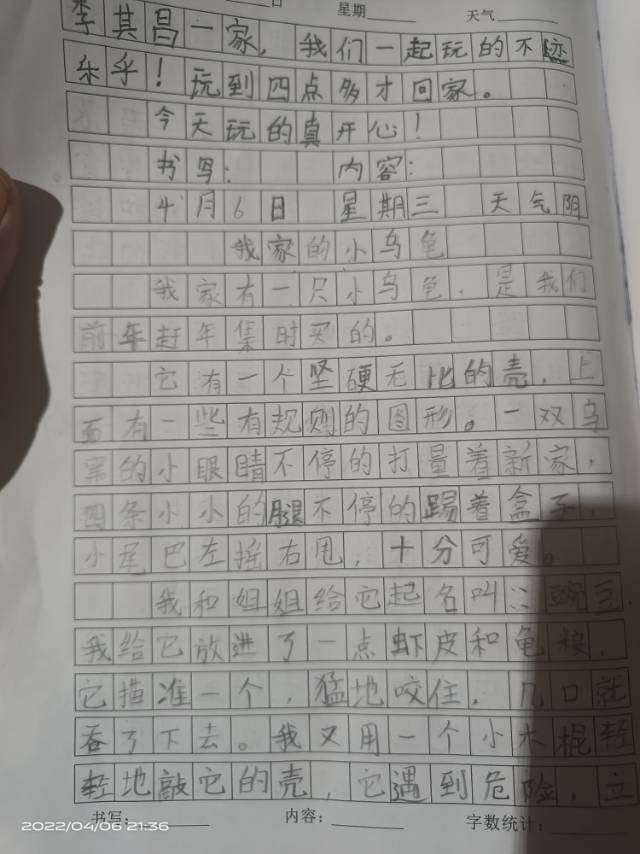 日 星期 天气
李其昌一家，我们一起玩的不
乐乎！玩到四点多才回家。
今天玩的真开心！
书写： 内容：
4月6日 星期三 天气阴
我家的小乌龟
我家有一只小乌龟，是我们
前年赶年集时买的。
它有一个坚硬无比的壳，上
面有一些有规则的图形。一双乌
黑的小眼睛不停的打量着新家，
四条小小的腿不停的踢着盒子，
小尾巴左摇右甩，十分可爱。
我和姐姐给它起名叫：豌豆，
我给它放进了一点虾皮和龟粮，
它描准一个，猛地咬住，几口就
吞了下去。我又用一个小木棍轻
轻地敲它的壳，它遇到危险，立
书写： 内容： 字数统计：
2022/04/06 21:36